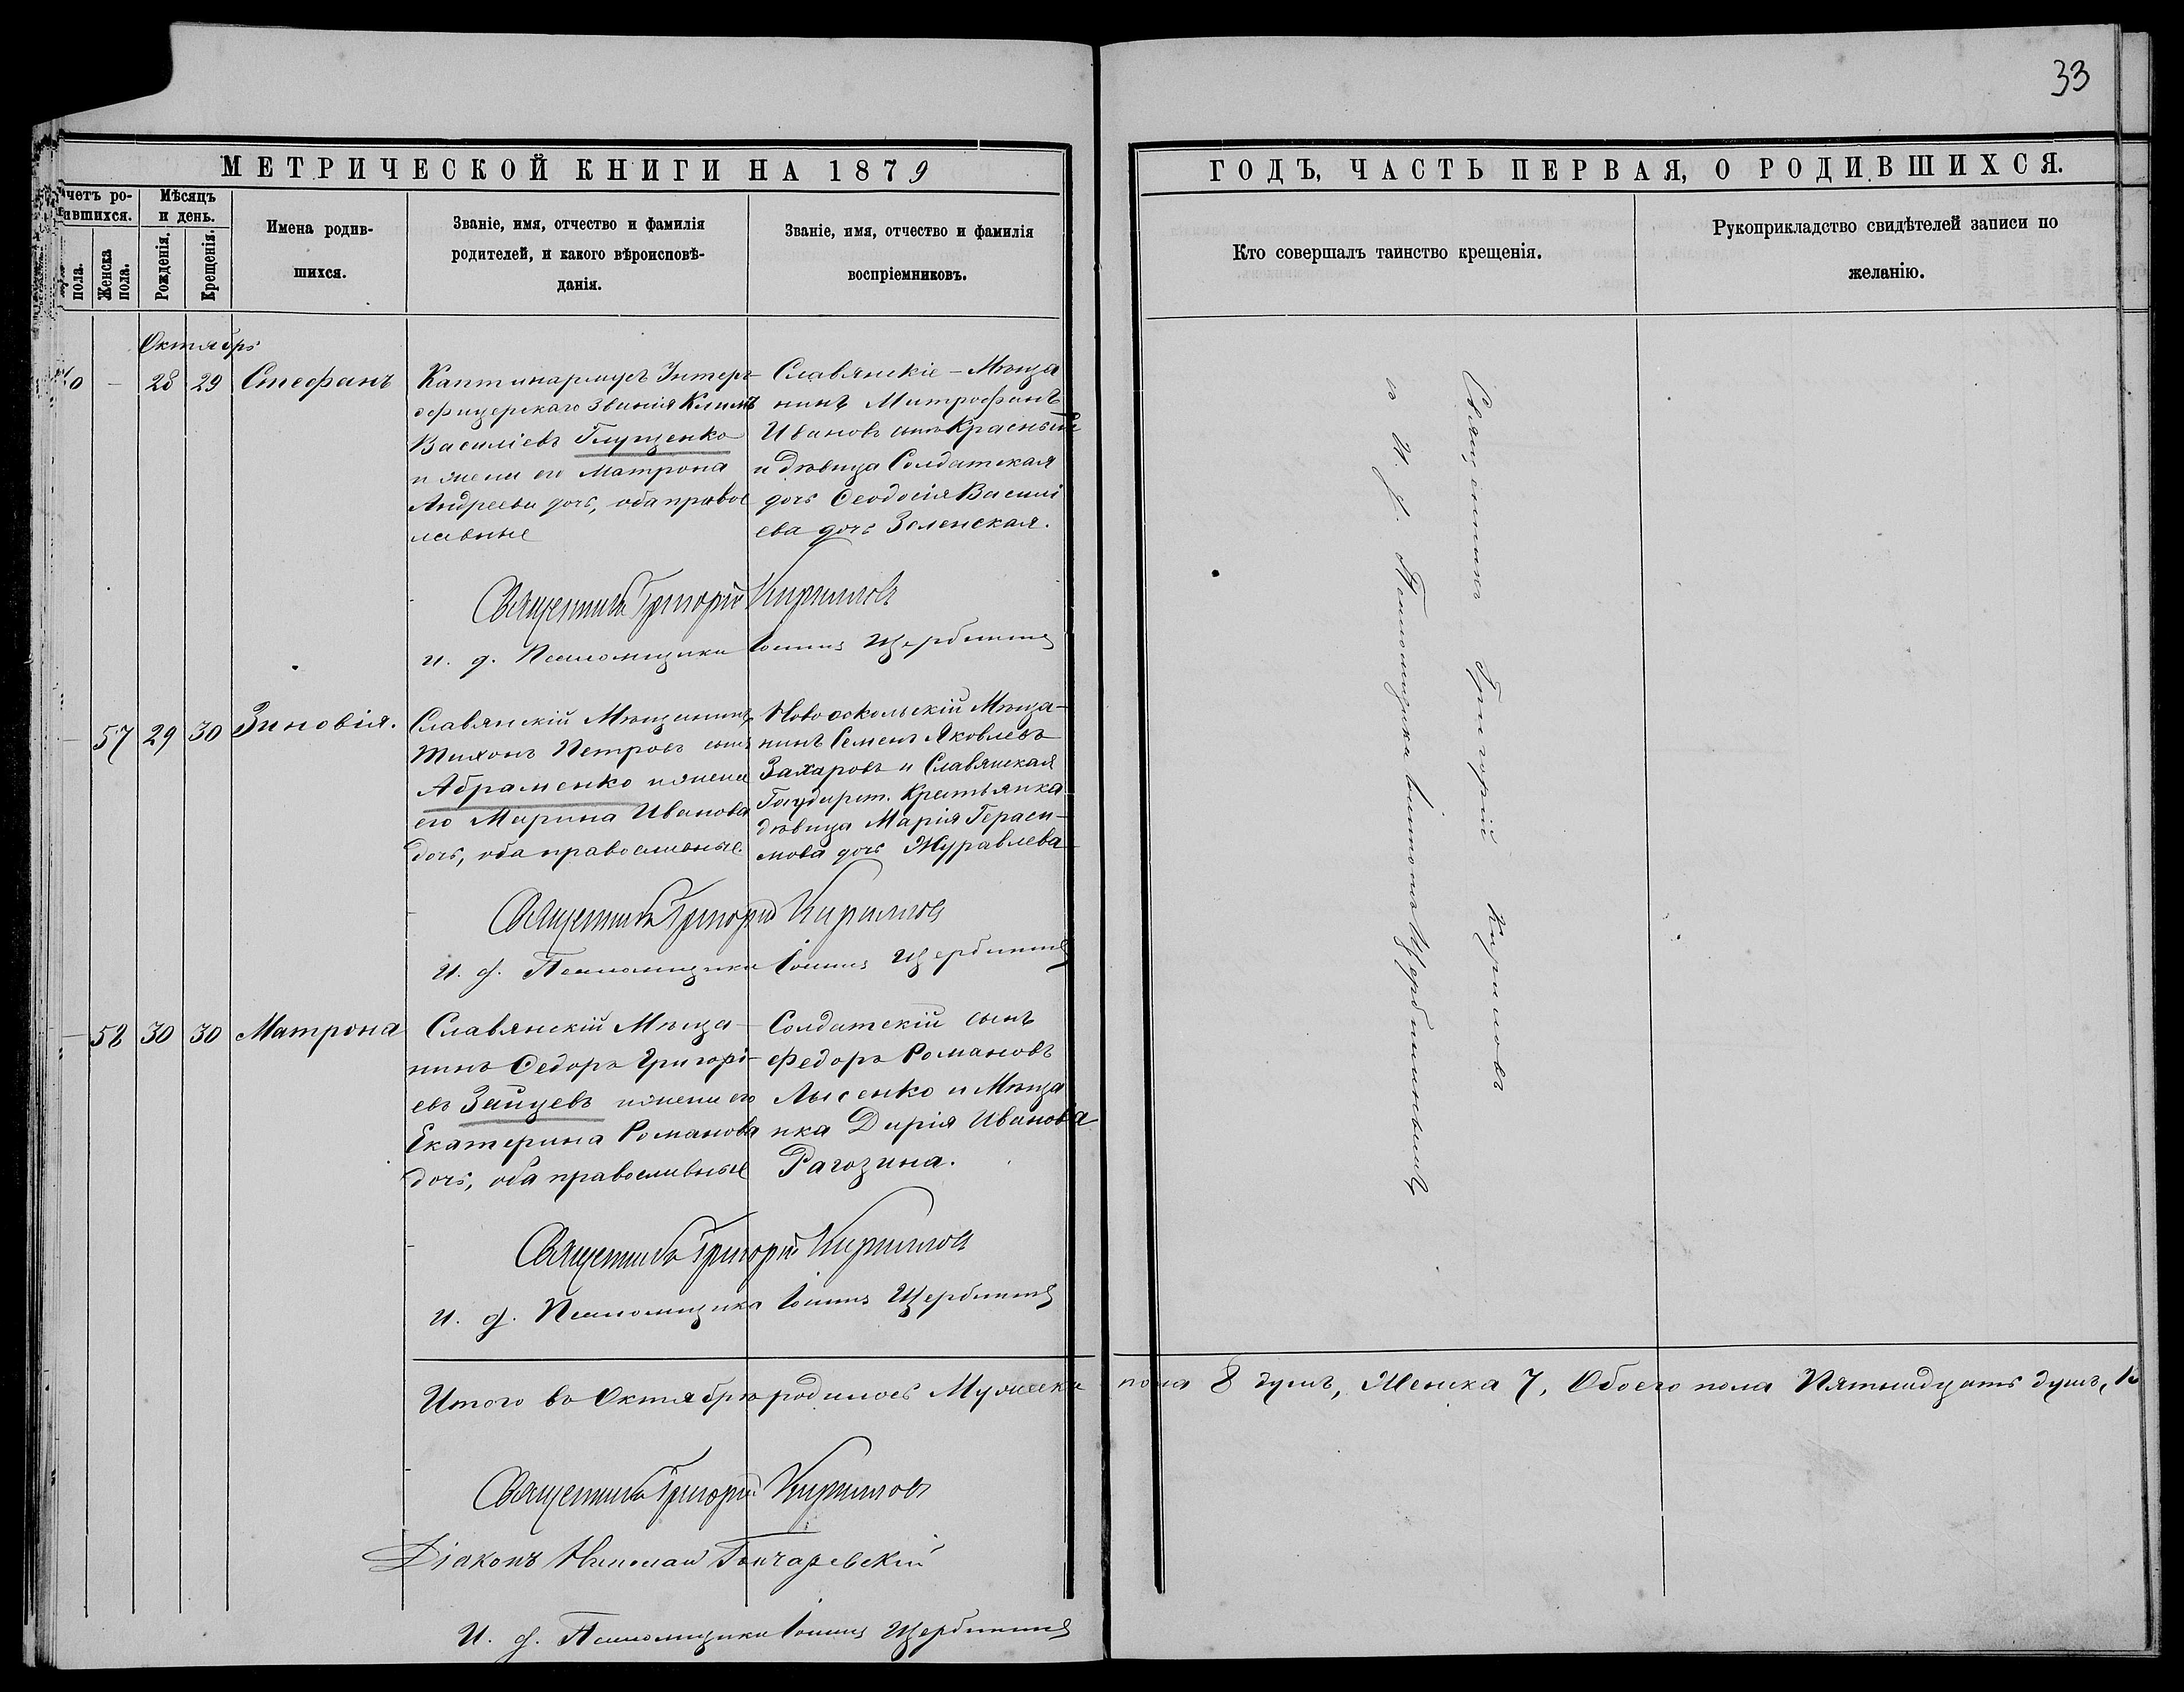 33
МЕТРИЧЕСКОЙ КНИГИ НА 1879
ГОДЪ, ЧАСТЬ ПЕРВАЯ, О РОДИВШИХСЯ.
четъ ро-
ившихся.
пола.
Женска
пола.
Мѣсяцъ
и день.
Рожденія.
Крещенія.
Имена родив-
шихся.
Званіе, имя, отчество и фамилія
родителей, и какого вѣроисповѣ-
данія.
Званіе, имя, отчество и фамилія
воспріемниковъ.
Кто совершалъ таинство крещенія.
Рукоприкладство свидѣтелей записи по
желанію.
Октябрь
28 29 Стефанъ
Каптинармусъ Унтеръ-
офицерскаго званія Климъ
Василіевъ Глущенко
и жена его Матрона
Андреева дочь, оба правос
лавные
Славянскіе - Мѣща
нинъ Митрофанъ
Ивановъ сынъ Красный
и дѣвица Солдатская
дочь Ѳеодосія Васили
ева дочь Зеленская.
Священникъ Григорій Кириловъ
и. д. Псаломщика Іоаннъ Щербининъ
57 29 30 Зиновія.
Славянскій Мѣщанинъ
Тихонъ Петровъ сынъ
Абраменко и жена
его Марина Иванова
дочь, оба православные
Новооскольскій Мѣща-
нинъ Семенъ Яковлевъ
Захаровъ и Славянская
Государст. Крестьянка
дѣвица Марія Гераси-
мова дочь Журавлева
Священникъ Григорій Кириловъ
И. д. Псаломщика Іоаннъ Щербининъ
58 30 30 Матрона
Славянскій Мѣща-
нинъ Ѳедоръ Григорі-
евъ Зайцевъ и жена его
Екатерина Романова
дочь, оба православные
Солдатскій сынъ
Федоръ Романовъ
Лысенко и Мѣща
нка Дарія Иванова
Рагозина.
Священникъ Григорій Кириловъ
и. д. Псаломщика Іоаннъ Щербининъ
Священникъ Григорій Кириловъ
и И. д. Псаломщика Іоаннъ Щербининъ
Итого въ Октябрѣ родилось Мужеска пола 8 душъ, Женска 7, Обоего пола Пятнадцать душъ,
Священникъ Григорій Кириловъ
Діаконъ Николай Гончаревскій
И. д. Псаломщика Іоаннъ Щербининъ